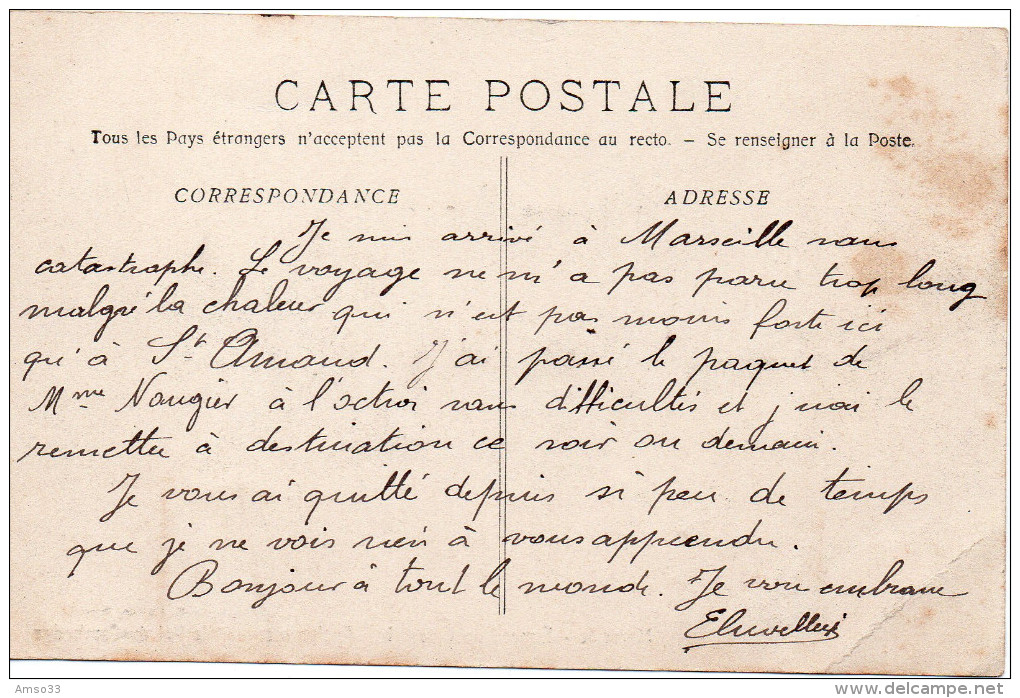 CARTE POSTALE
Tous les Pays étrangers n'acceptent pas la Correspondance au recto. – Se renseigner à la Poste.
CORRESPONDANCE ADRESSE
Je suis arrivé à Marseille sans
catastrophe. Le voyage ne m'a pas paru trop long
malgré la chaleur qui n'est pas moins forte ici
qu'à St Amand. J'ai passé le paquet de
Mme Naugier à l'octroi sans difficultés et j'irai le
remettre à destination ce soir ou demain.
Je vous ai quitté depuis si peu de temps
que je ne vois rien à vous apprendre.
Bonjour à tout le monde. Je vous embrasse
Amso33
delcampe.net